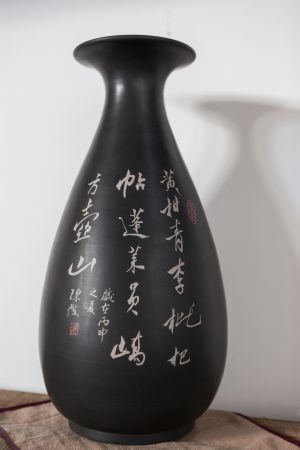 黄柑青李枇杷
帖蓬萊員嶠
方壺山
歲在丙申
之夏
陳俊